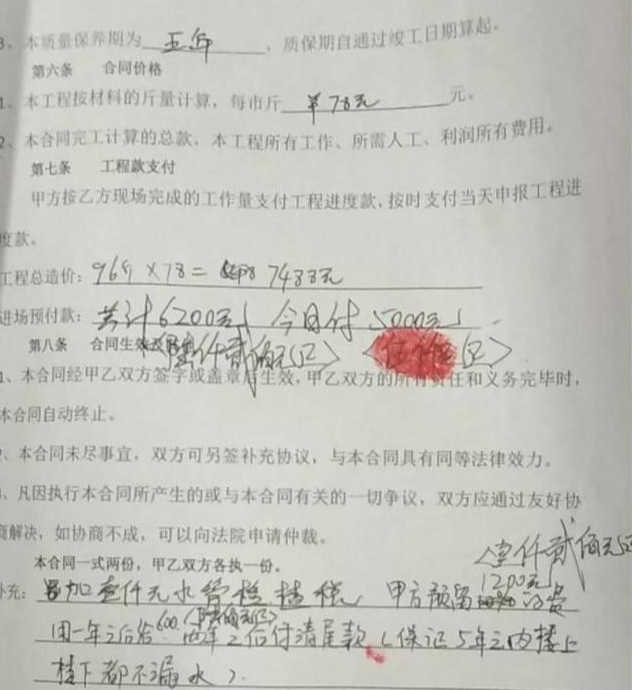 3、本质量保养期为 五年 ，质保期自通过竣工日期算起。
第六条 合同价格
1、本工程按材料的斤量计算，每市斤 ￥78元 元。
2、本合同完工计算的总款，本工程所有工作、所需人工、利润所有费用。
第七条 工程款支付
甲方按乙方现场完成的工作量支付工程进度款，按时支付当天申报工程进
度款。
工程总造价：96斤×78= 7488元
进场预付款：共计6200元 今日付5000元
第八条 合同生效及
〈陆仟贰佰元正〉〈伍仟元正〉
1、本合同经甲乙双方签字或盖章后生效，甲乙双方的所有责任和义务完毕时，
本合同自动终止。
、本合同未尽事宜，双方可另签补充协议，与本合同具有同等法律效力。
、凡因执行本合同所产生的或与本合同有关的一切争议，双方应通过友好协
商解决，如协商不成，可以向法院申请仲裁。
〈壹仟贰佰元正
本合同一式两份，甲乙双方各执一份。
1200元
补充： 加 水管 甲方预留
600
用一年之后给 两年之后付清尾款（保证5年之内楼上
楼下都不漏水）.